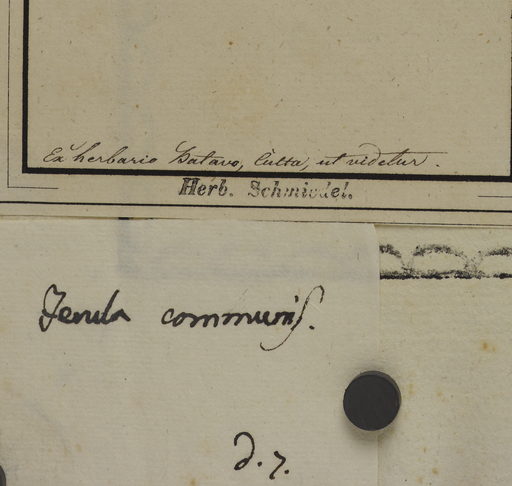 Ex herbario Batavo, Culta, ut videtur.
Herb. Schmiedel.
Ferula communis.
d. 7.